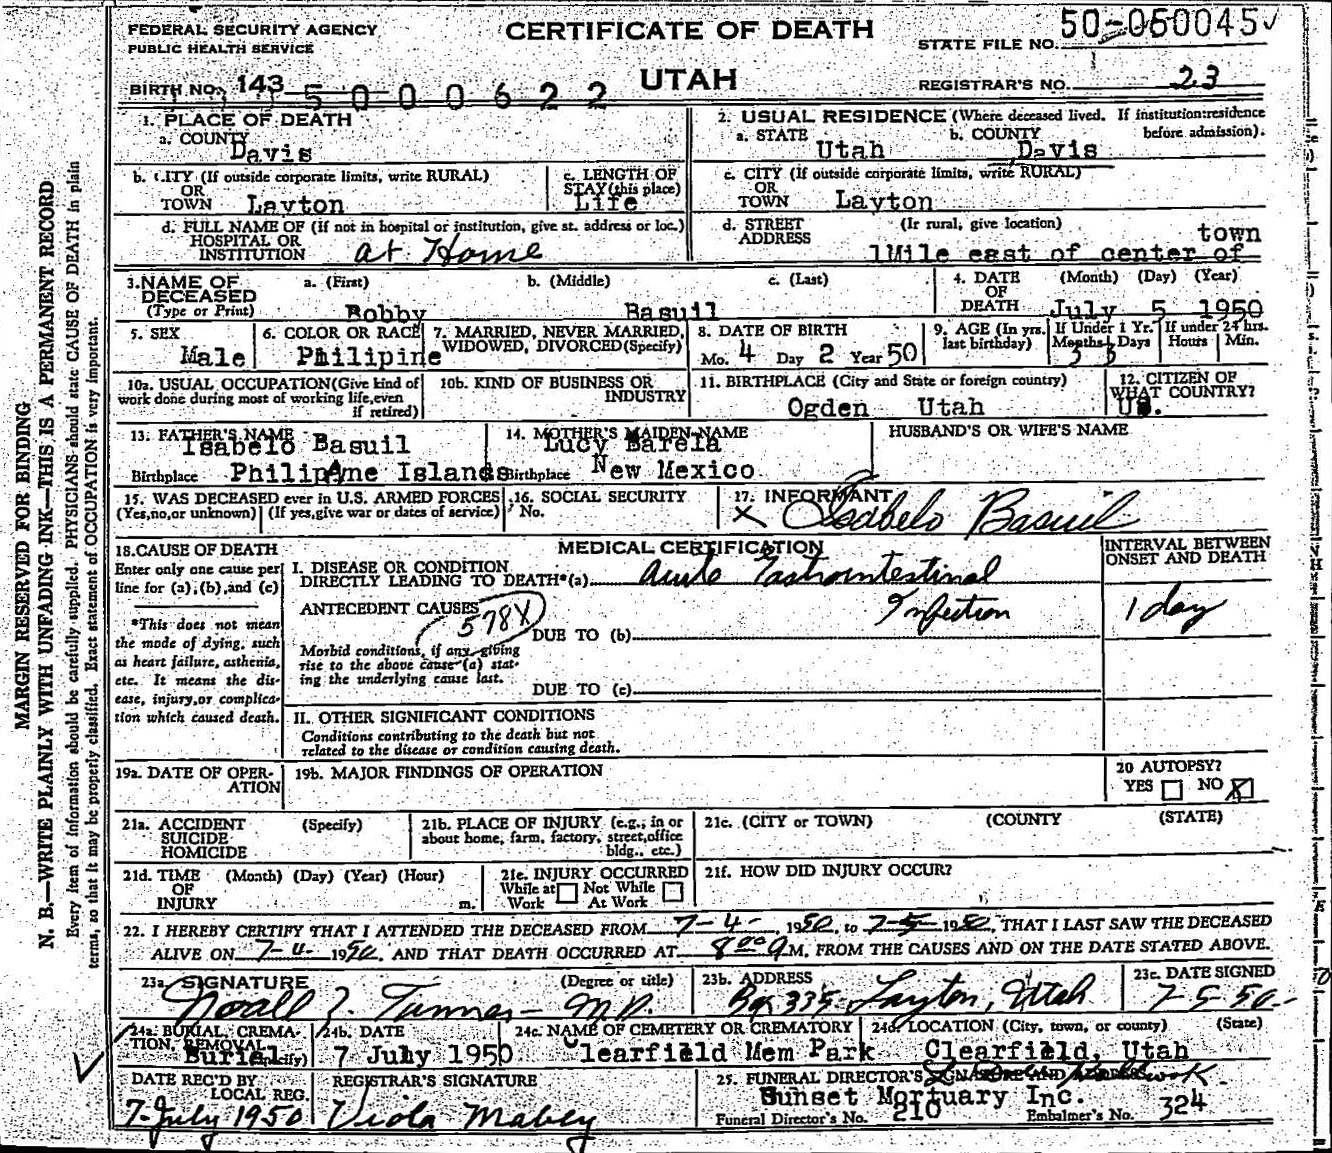 FEDERAL SECURITY AGENCY
PUBLIC HEALTH SERVICE
CERTIFICATE OF DEATH
STATE FILE NO. 50-060045
BIRTH NO. 143 5000622
UTAH
REGISTRAR'S NO. 23
1. PLACE OF DEATH
a. COUNTY Davis
2. USUAL RESIDENCE (Where deceased lived. If institution: residence before admission).
a. STATE Utah b. COUNTY Davis
b. CITY (If outside corporate limits, write RURAL) OR TOWN Layton
c. LENGTH OF STAY (this place) Life
c. CITY (If outside corporate limits, write RURAL) OR TOWN Layton
d. FULL NAME OF (if not in hospital or institution, give st. address or loc.) HOSPITAL OR INSTITUTION at Home
d. STREET ADDRESS (If rural, give location) 1Mile east of center of town
3. NAME OF DECEASED (Type or Print)
a. (First) Bobby b. (Middle) c. (Last) Basuil
4. DATE OF DEATH (Month) (Day) (Year) July 5 1950
5. SEX Male
6. COLOR OR RACE Philipine
7. MARRIED, NEVER MARRIED, WIDOWED, DIVORCED (Specify)
8. DATE OF BIRTH Mo. 4 Day 2 Year 50
9. AGE (In yrs. last birthday) If Under 1 Yr. Months 3 Days 3 If under 24 hrs. Hours Min.
10a. USUAL OCCUPATION (Give kind of work done during most of working life, even if retired)
10b. KIND OF BUSINESS OR INDUSTRY
11. BIRTHPLACE (City and State or foreign country) Ogden Utah
12. CITIZEN OF WHAT COUNTRY? US.
13. FATHER'S NAME Isabelo Basuil
Birthplace Philipine Islands
14. MOTHER'S MAIDEN NAME Lucy Barela
Birthplace New Mexico
HUSBAND'S OR WIFE'S NAME
15. WAS DECEASED ever in U.S. ARMED FORCES (Yes, no, or unknown) (If yes, give war or dates of service)
16. SOCIAL SECURITY No.
17. INFORMANT X Isabelo Basuil
18. CAUSE OF DEATH
Enter only one cause per line for (a), (b), and (c)
*This does not mean the mode of dying, such as heart failure, asthenia, etc. It means the disease, injury, or complication which caused death.
MEDICAL CERTIFICATION
INTERVAL BETWEEN ONSET AND DEATH
I. DISEASE OR CONDITION DIRECTLY LEADING TO DEATH*(a) Acute Gastrointestinal Infection
1 day
ANTECEDENT CAUSES
578X
DUE TO (b)
Morbid conditions, if any, giving rise to the above cause (a) stating the underlying cause last.
DUE TO (c)
II. OTHER SIGNIFICANT CONDITIONS
Conditions contributing to the death but not related to the disease or condition causing death.
19a. DATE OF OPERATION
19b. MAJOR FINDINGS OF OPERATION
20 AUTOPSY?
YES NO X
21a. ACCIDENT SUICIDE HOMICIDE (Specify)
21b. PLACE OF INJURY (e.g., in or about home, farm, factory, street, office bldg., etc.)
21c. (CITY or TOWN) (COUNTY (STATE)
21d. TIME OF INJURY (Month) (Day) (Year) (Hour) m.
21e. INJURY OCCURRED While at Work Not While At Work
21f. HOW DID INJURY OCCUR?
22. I HEREBY CERTIFY THAT I ATTENDED THE DECEASED FROM 7-4-, 1950, to 7-5-1950, THAT I LAST SAW THE DECEASED
ALIVE ON 7-4- 1950, AND THAT DEATH OCCURRED AT 8:00 A M, FROM THE CAUSES AND ON THE DATE STATED ABOVE.
23a. SIGNATURE (Degree or title) Noall Z. Tanner M.D.
23b. ADDRESS Box 335 Layton, Utah
23c. DATE SIGNED 7-5-50-
24a. BURIAL, CREMATION, REMOVAL (Specify) Burial
24b. DATE 7 July 1950
24c. NAME OF CEMETERY OR CREMATORY Clearfield Mem Park
24d. LOCATION (City, town, or county) (State) Clearfield, Utah
DATE REC'D BY LOCAL REG. 7-July 1950
REGISTRAR'S SIGNATURE Viola Mabey
25. FUNERAL DIRECTOR'S SIGNATURE AND ADDRESS
Sunset Mortuary Inc.
Funeral Director's No. 210 Embalmer's No. 324
MARGIN RESERVED FOR BINDING
N. B.—WRITE PLAINLY WITH UNFADING INK—THIS IS A PERMANENT RECORD
Every item of information should be carefully supplied. PHYSICIANS should state CAUSE OF DEATH in plain
terms, so that it may be properly classified. Exact statement of OCCUPATION is very important.